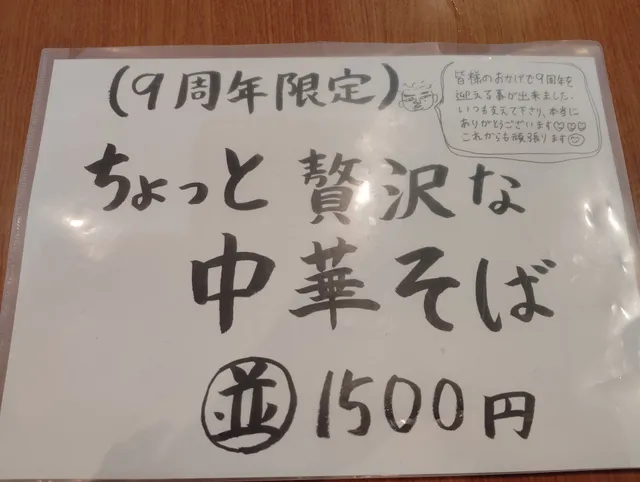 (9周年限定)
皆様のおかげで9周年を
迎える事が出来ました.
いつも支えて下さり、本当に
ありがとうございます
これからも頑張ります
ちょっと贅沢な
中華そば
並 1500円